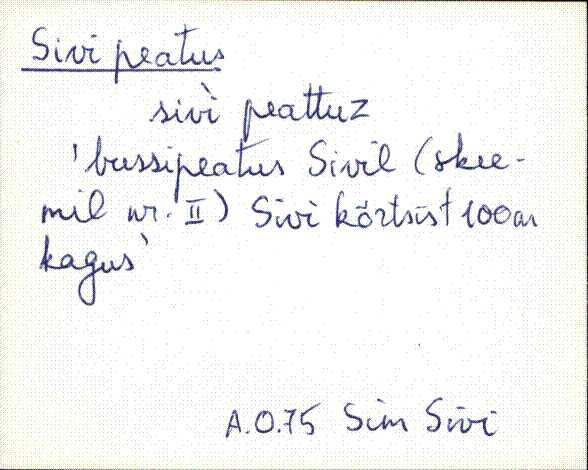 Sivi peatus
sivì peattuz
'bussipeatus Sivil (skee-
mil nr. II) Sivi kõrtsist 100 m
kagus'
A.O.75 Sim Sivi